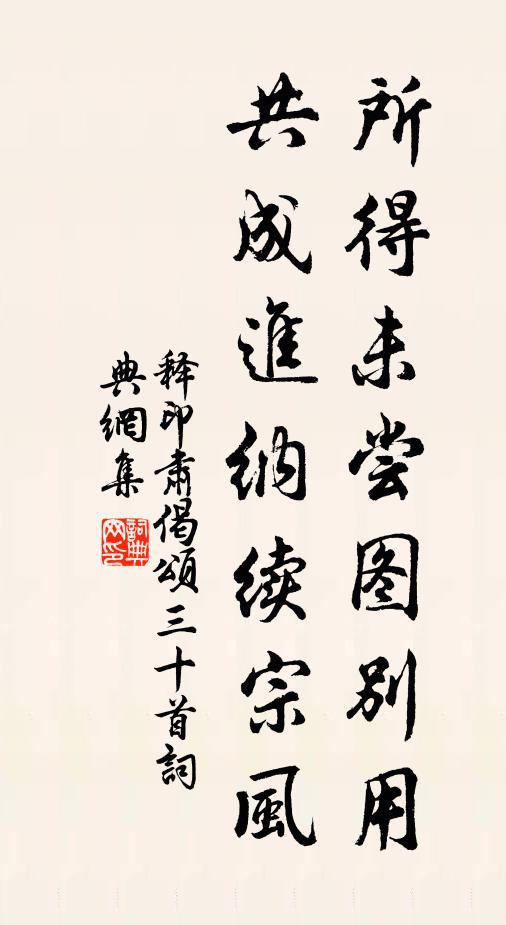 所得未尝图别用
共成進纳续宗風
释印肃偈頌三十首詞
典網集
詞典网印